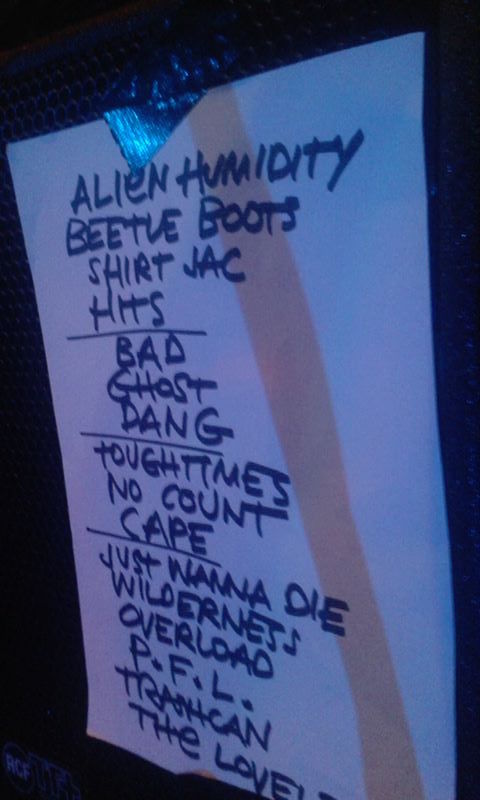 ALIEN HUMIDITY
BEETLE BOOTS
SHIRT JAC
HITS
BAD
GHOST
DANG
TOUGHTIMES
NO COUNT
CAPE
JUST WANNA DIE
WILDERNESS
OVERLOAD
P.F.L.
TRASHCAN
THE
RCF